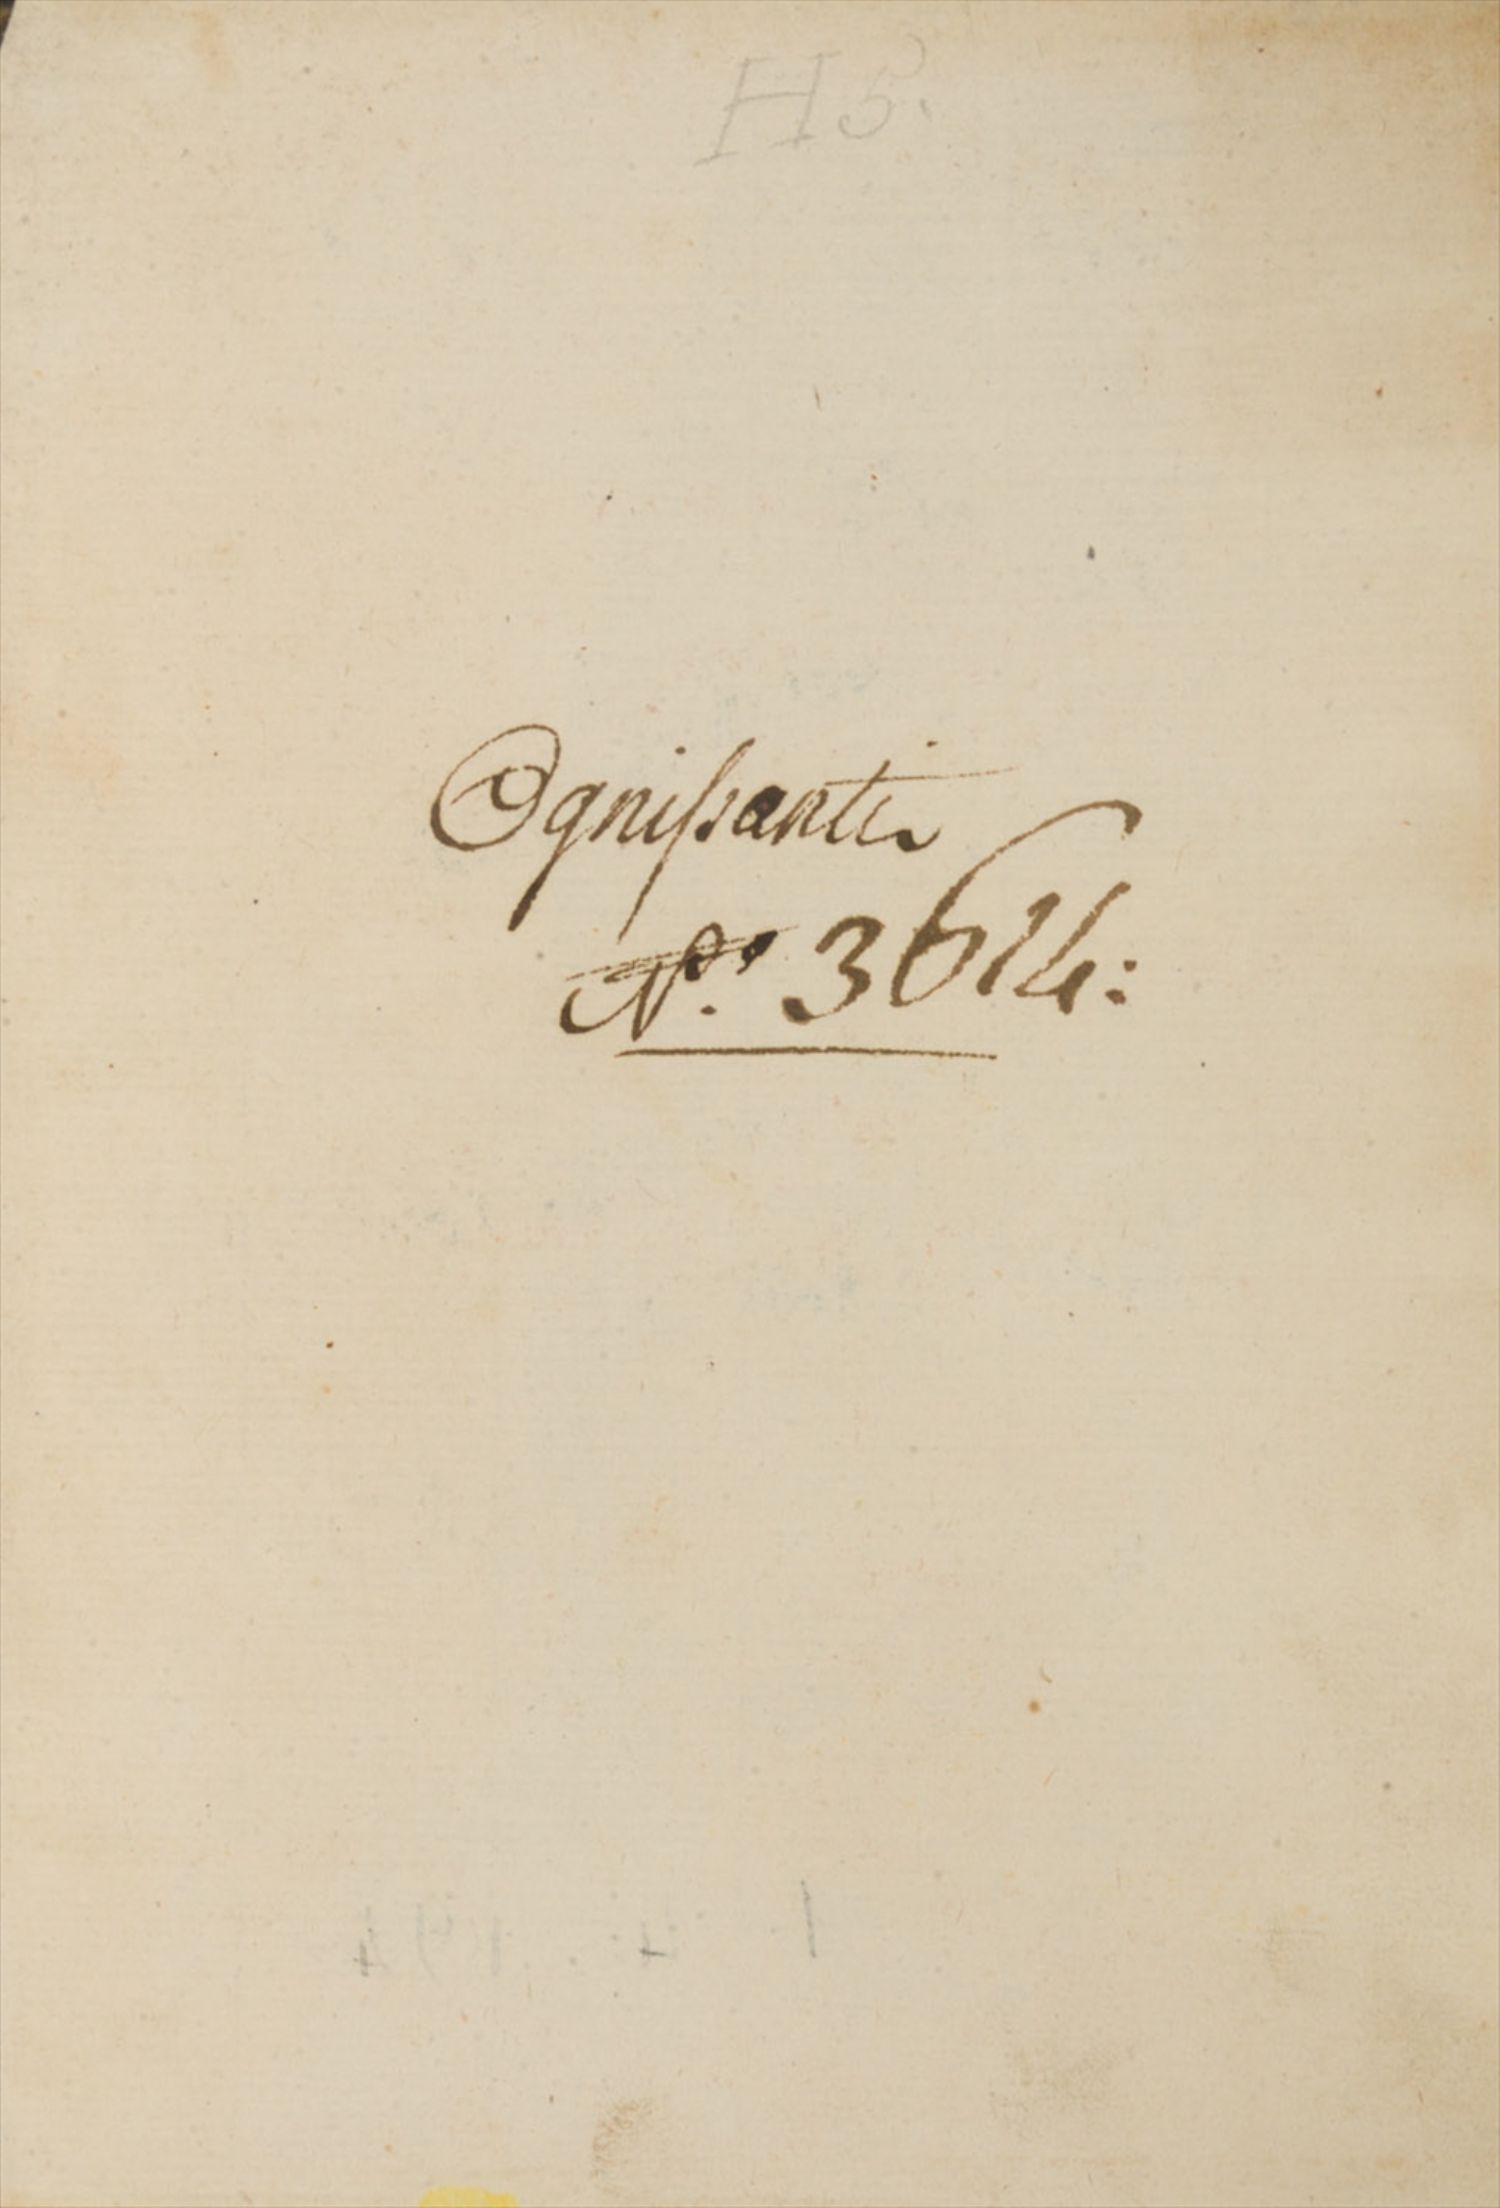 H5.
Ognissanti
No. 3614: